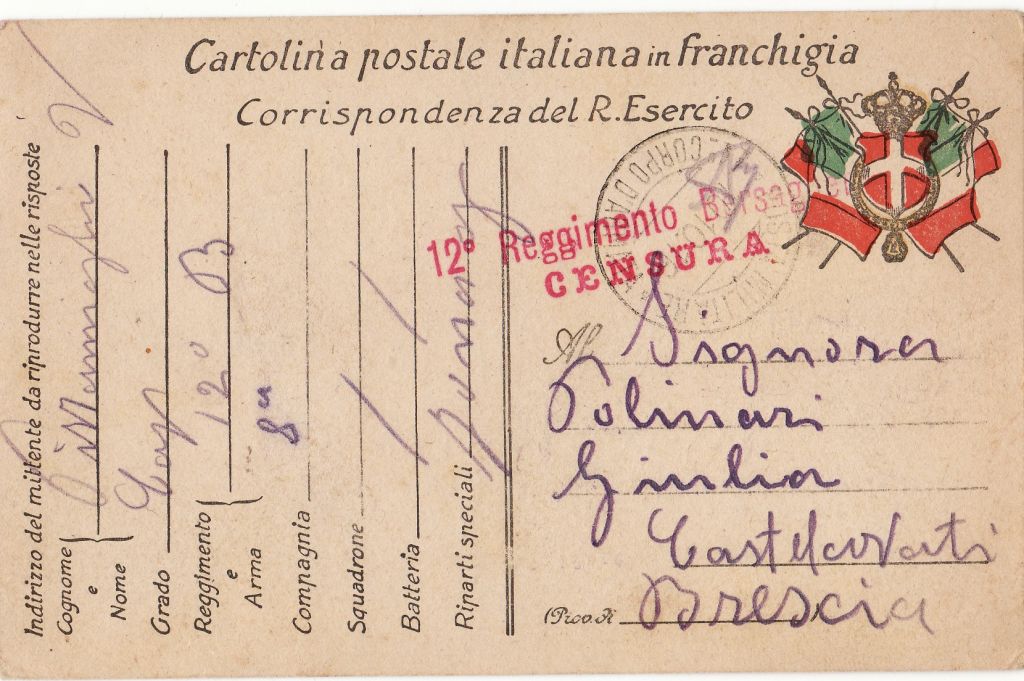 Cartolina postale italiana in franchigia
Corrispondenza del R. Esercito
12° Reggimento Bersaglieri
CENSURA
Al Signora
Polinari
Giulia
Castelcovati
(Prov. di Brescia
Indirizzo del mittente da riprodurre nelle risposte
Cognome e Nome
Grado Cap
Reggimento e Arma 12° B
Compagnia 8a
Squadrone
Batteria
Riparti speciali